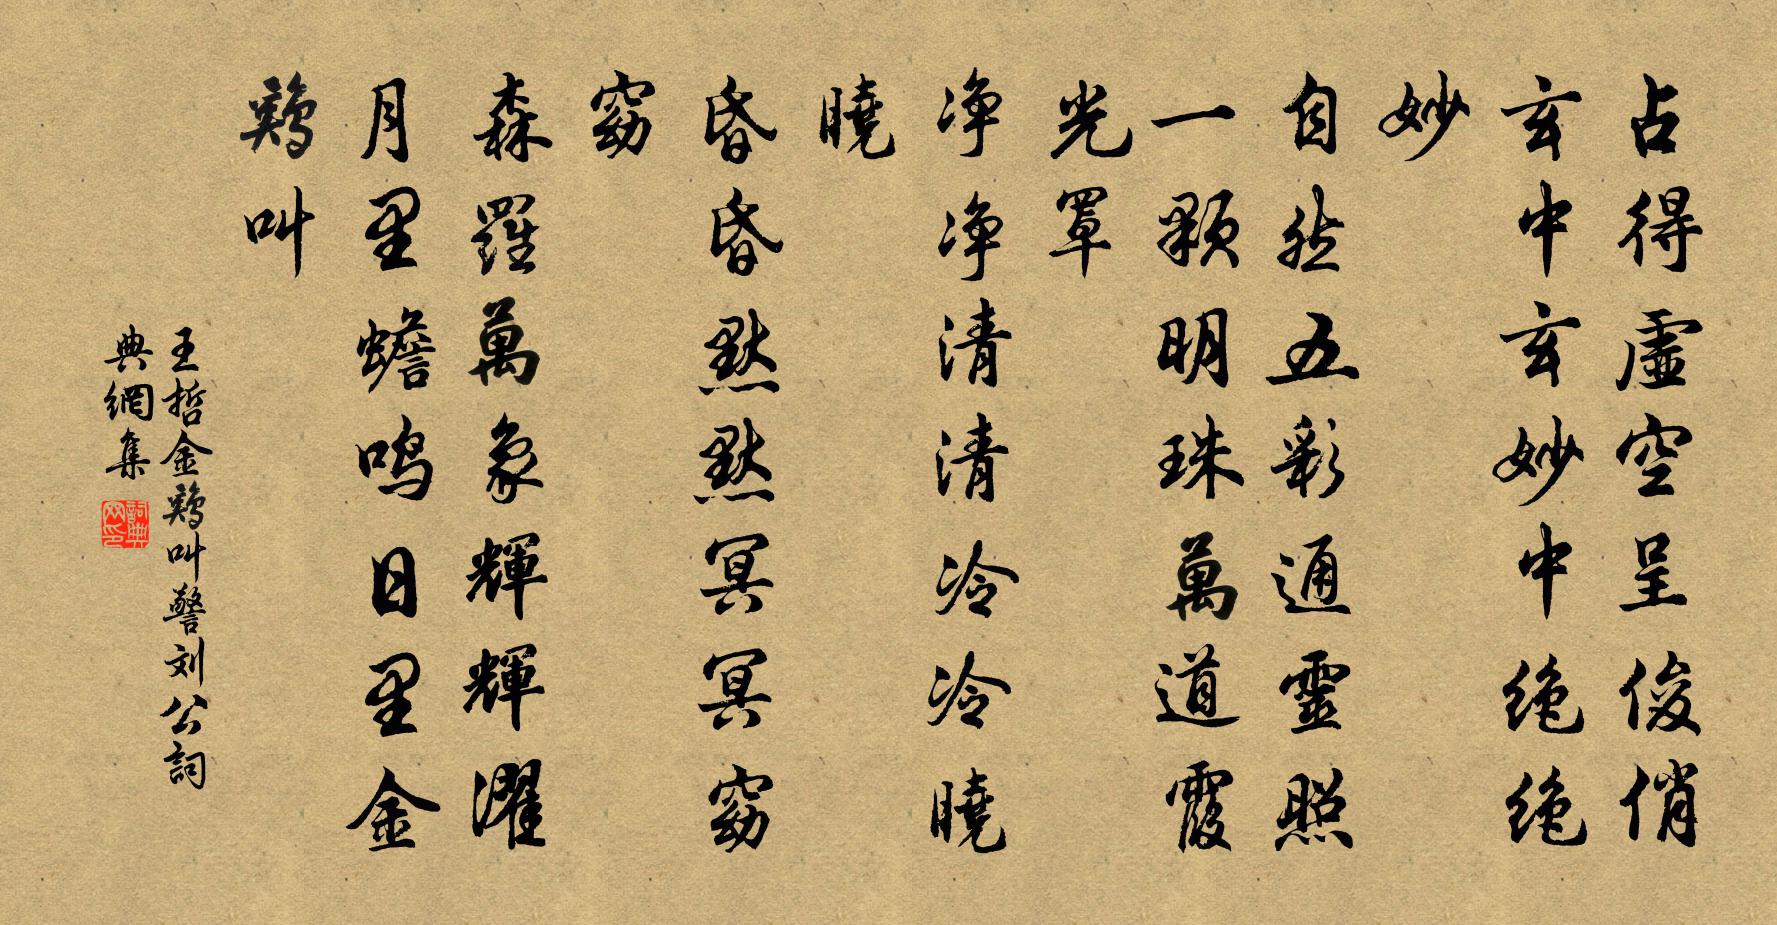 占得虛空呈俊俏
玄中玄妙中絶絶
妙
自然五彩通靈照
一顆明珠萬道霞
光罩
净净清清冷冷曉
曉
昏昏默默冥冥窈
窈
森羅萬象輝輝濯
月里蟾鸣日里金
鷄叫
王哲金鷄叫警刘公詞
典網集
詞典网印